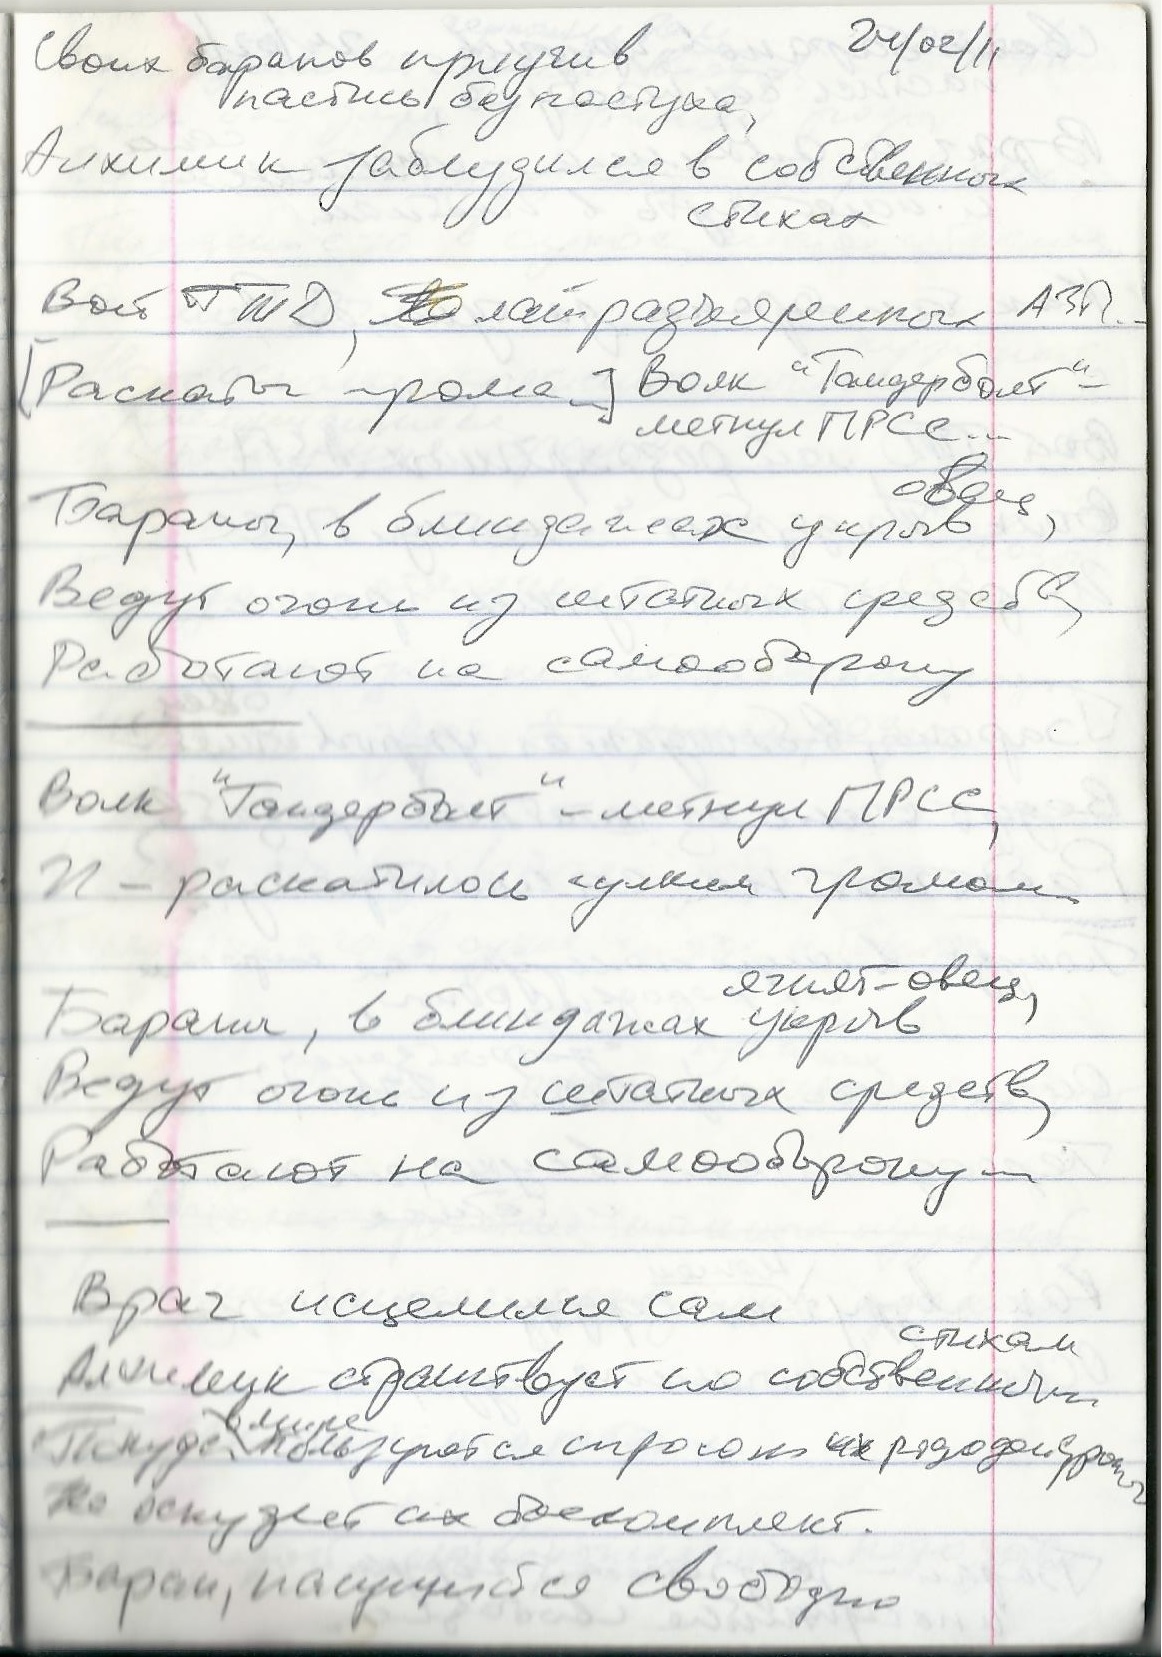 24/02/11
Своих баранов приучив
пастись без пастуха,
Алхимик заблудился в собственных
стихах
Вой ПТД, лай разъяренных АЗП...
[Раскаты грома...] Волк "Тандерболт" -
метнул ПРСС...
овец,
Бараны, в блиндажах укрыв
Ведут огонь из штатных средств,
Работают на самооборону
Волк "Тандерболт" - метнул ПРСС,
И - раскатилось гулким громом
ягнят-овец,
Бараны, в блиндажах укрыв
Ведут огонь из штатных средств,
Работают на самооборону...
Врач исцелился сам
стихам
Алхимик странствует по собственным
в мире
Покуда пользуются спросом их
Не оскудеет их боекомплект.
Баран, пасущийся свободно